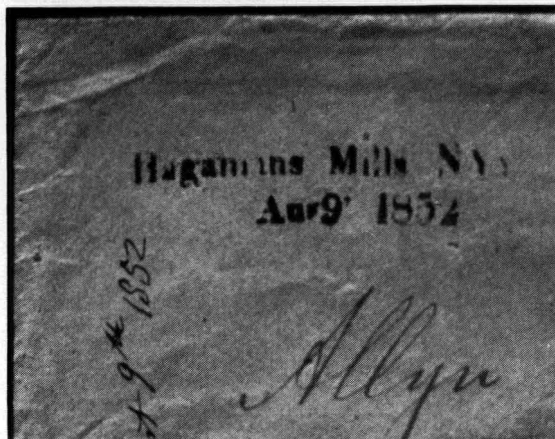 Hagamans Mills NY
Aug 9' 1852
9th 1852
Allyn